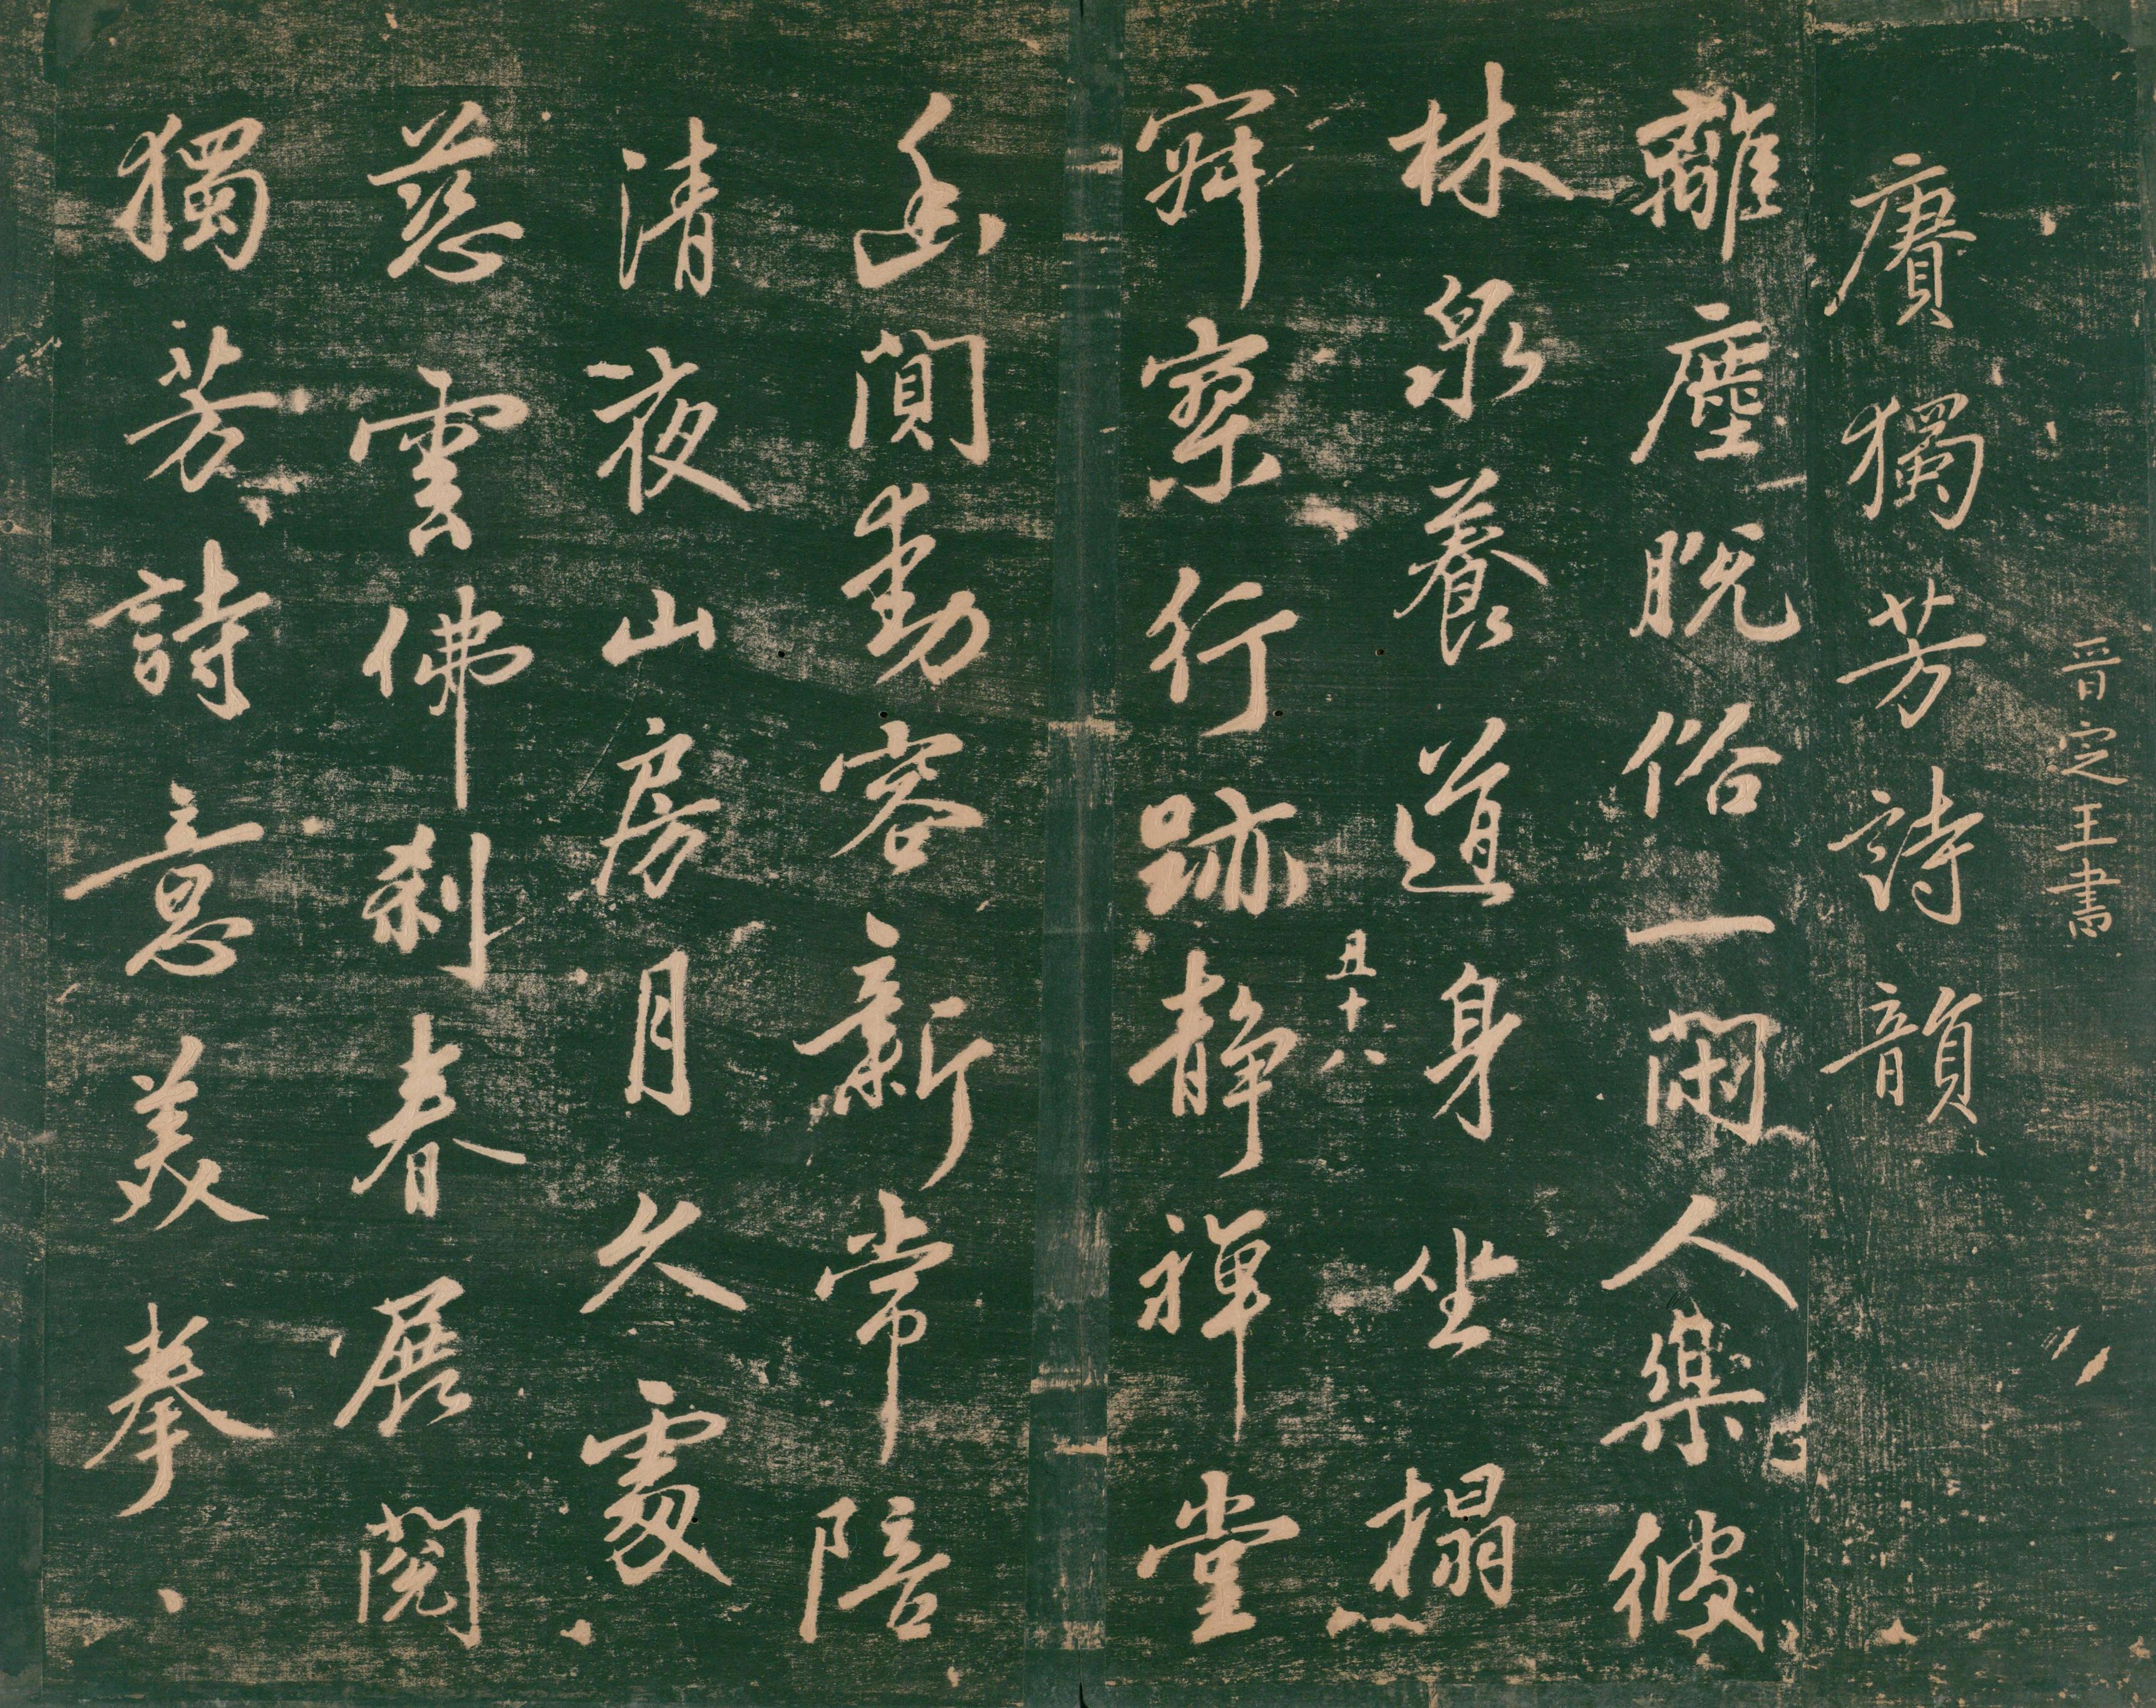 晉定王書
賡獨芳詩韻
離塵脫俗一閑人樂彼
林泉養道身坐榻
丑十八
寂寥行跡靜禪堂
幽閒動容新常陪
清夜山房月久處
慈雲佛刹春展閱
獨芳詩意美拳